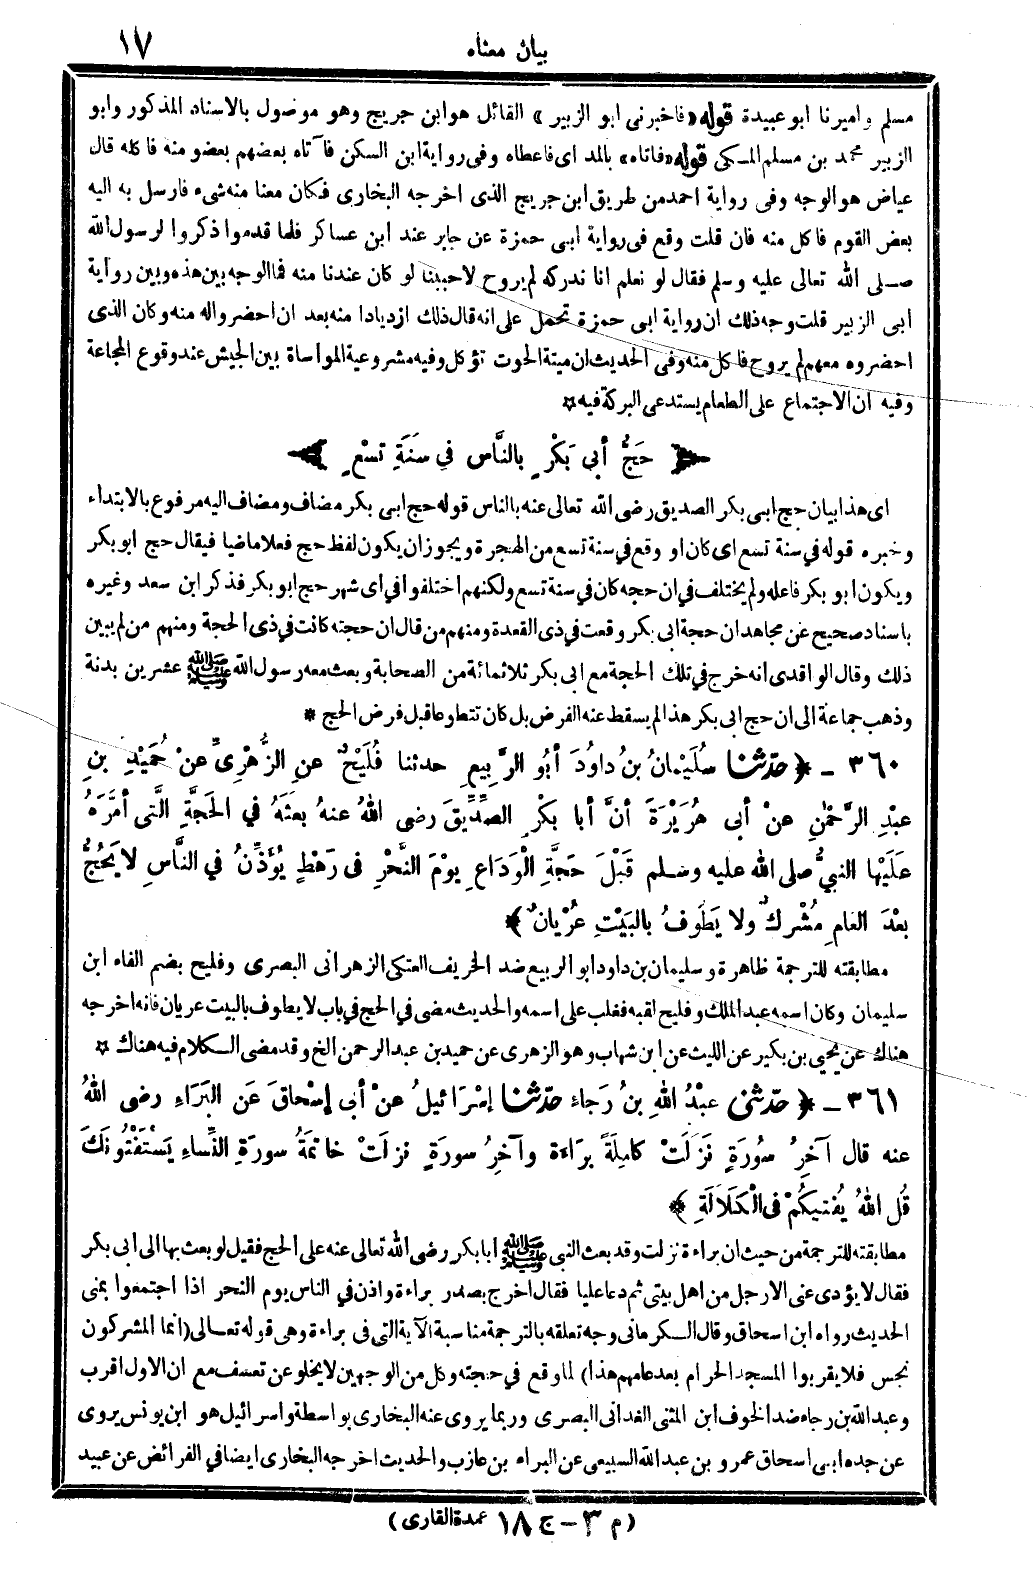 ١٧
بيان معناه
مسلم واميرنا ابو عبيدة قوله «فاخبرنى ابو الزبير» القائل هو ابن جريج وهو موضول بالاسناد المذكور وابو
الزبير محمد بن مسلم المكى قوله «فاتاه» بالمد اى فاعطاه وفى رواية ابن السكن فآتاه بعضهم بعضو منه فاكله قال
عياض هو الوجه وفى رواية احمد من طريق ابن جريج الذى اخرجه البخارى فكان معنا منه شىء فارسل به اليه
بعض القوم فاكل منه فان قلت وقع فى رواية ابى حمزة عن جابر عند ابن عساكر فلما قدموا ذكروا لرسول الله
صلى الله تعالى عليه وسلم فقال لو نعلم انا ندركه لم يروح لاحببنا لو كان عندنا منه فما الوجه بين هذه وبين رواية
ابى الزبير قلت وجه ذلك ان رواية ابى حمزة تحمل على انه قال ذلك ازديادا منه بعد ان احضروا له منه وكان الذى
احضروه معهم لم يروح فاكل منه وفى الحديث ان ميتة الحوت تؤكل وفيه مشروعية المواساة بين الجيش عند وقوع المجاعة
وفيه ان الاجتماع على الطعام يستدعى البركة فيه ✩
﴿ حَجُّ أبي بَكْرٍ بالنَّاس في سَنَةِ تسْعٍ ﴾
اى هذا بيان حج ابى بكر الصديق رضى الله تعالى عنه بالناس قوله حج ابى بكر مضاف ومضاف اليه مرفوع بالابتداء
وخبره قوله في سنة تسع اى كان او وقع في سنة تسع من الهجرة ويجوز ان يكون لفظ حج فعلا ماضيا فيقال حج ابو بكر
ويكون ابو بكر فاعله ولم يختلف في ان حجه كان في سنة تسع ولكنهم اختلفوا في اى شهر حج ابو بكر فذكر ابن سعد وغيره
باسناد صحيح عن مجاهد ان حجة ابى بكر وقعت في ذى القعدة ومنهم من قال ان حجته كانت في ذى الحجة ومنهم من لم يبين
ذلك وقال الواقدى انه خرج في تلك الحجة مع ابى بكر ثلاثمائة من الصحابة وبعث معه رسول الله ﷺ عشرين بدنة
وذهب جماعة الى ان حج ابى بكر هذا لم يسقط عنه الفرض بل كان تتطوعا قبل فرض الحج *
٣٦٠ - ﴿ حدّثنا سُلَيْمانُ بن دَاودَ أبُو الرَّبِيعِ حدثنا فُلَيْحٌ عنِ الزُّهْرِىِّ عنْ حُمَيْدِ بنِ
عبْدِ الرَّحْمٰنِ عنْ أبى هُرَيْرَةَ أنَّ أبا بكْرٍ الصدِّيقَ رضى اللهُ عنهُ بعَثَهُ في الحَجَّةِ الَّتى أمَّرَهُ
عَلَيْها النبيُّ صلى الله عليه وسلم قَبْلَ حَجَّةِ الْوَدَاعِ يوْمَ النَّحْرِ فى رَهْطٍ يُؤَذِّنُ في النَّاسِ لا يَحُجُّ
بعْدَ العامِ مُشْرِكٌ ولا يَطوفُ بالبَيْتِ عُرْيانٌ ﴾
مطابقته للترجمة ظاهرة وسليمان بن داود ابو الربيع ضد الخريف العتكى الزهرانى البصرى وفليح بضم الفاء ابن
سليمان وكان اسمه عبد الملك وفليح لقبه فغلب على اسمه والحديث مضى في الحج في باب لا يطوف بالبيت عريان فانه اخرجه
هناك عن يحيى بن بكير عن الليث عن ابن شهاب وهو الزهرى عن حميد بن عبد الرحمن الخ وقد مضى الكلام فيه هناك ✩
٣٦١ - ﴿ حدّثنى عبْدُ اللهِ بنُ رَجاء حدّثنا إسْرَائيلُ عنْ أبى إسْحاقَ عَنِ البَرَاءِ رضى اللهُ
عنه قال آخرُ سُورَةٍ نَزَلَتْ كامِلَةً بَرَاءة وآخرُ سورَةٍ نزلَتْ خاتمةُ سورَةِ النِّساءِ يَسْتَفْتُونَكَ
قُل اللهُ يُفتيكُمْ فى الْكَلَالَةِ ﴾
مطابقته للترجمة من حيث ان براءة نزلت وقد بعث النبى ﷺ ابا بكر رضى الله تعالى عنه على الحج فقيل لو بعث بها الى ابى بكر
فقال لا يؤدى عنى الا رجل من اهل بيتى ثم دعا عليا فقال اخرج بصدر براءة واذن في الناس يوم النحر اذا اجتمعوا بمنى
الحديث رواه ابن اسحاق وقال الكرمانى وجه تعلقه بالترجمة مناسبة الآية التى فى براءة وهى قوله تعالى (انما المشركون
نجس فلا يقربوا المسجد الحرام بعد عامهم هذا) لما وقع في حجته وكل من الوجهين لا يخلو عن تعسف مع ان الاول اقرب
وعبد الله بن رجاء ضد الخوف ابن المثنى الغدانى البصرى وربما يروى عنه البخارى بواسطة واسرائيل هو ابن يونس يروى
عن جده ابى اسحاق عمرو بن عبد الله السبيعى عن البراء بن عازب والحديث اخرجه البخارى ايضا في الفرائض عن عبيد
(م ٣ - ج ١٨ عمدة القارى)